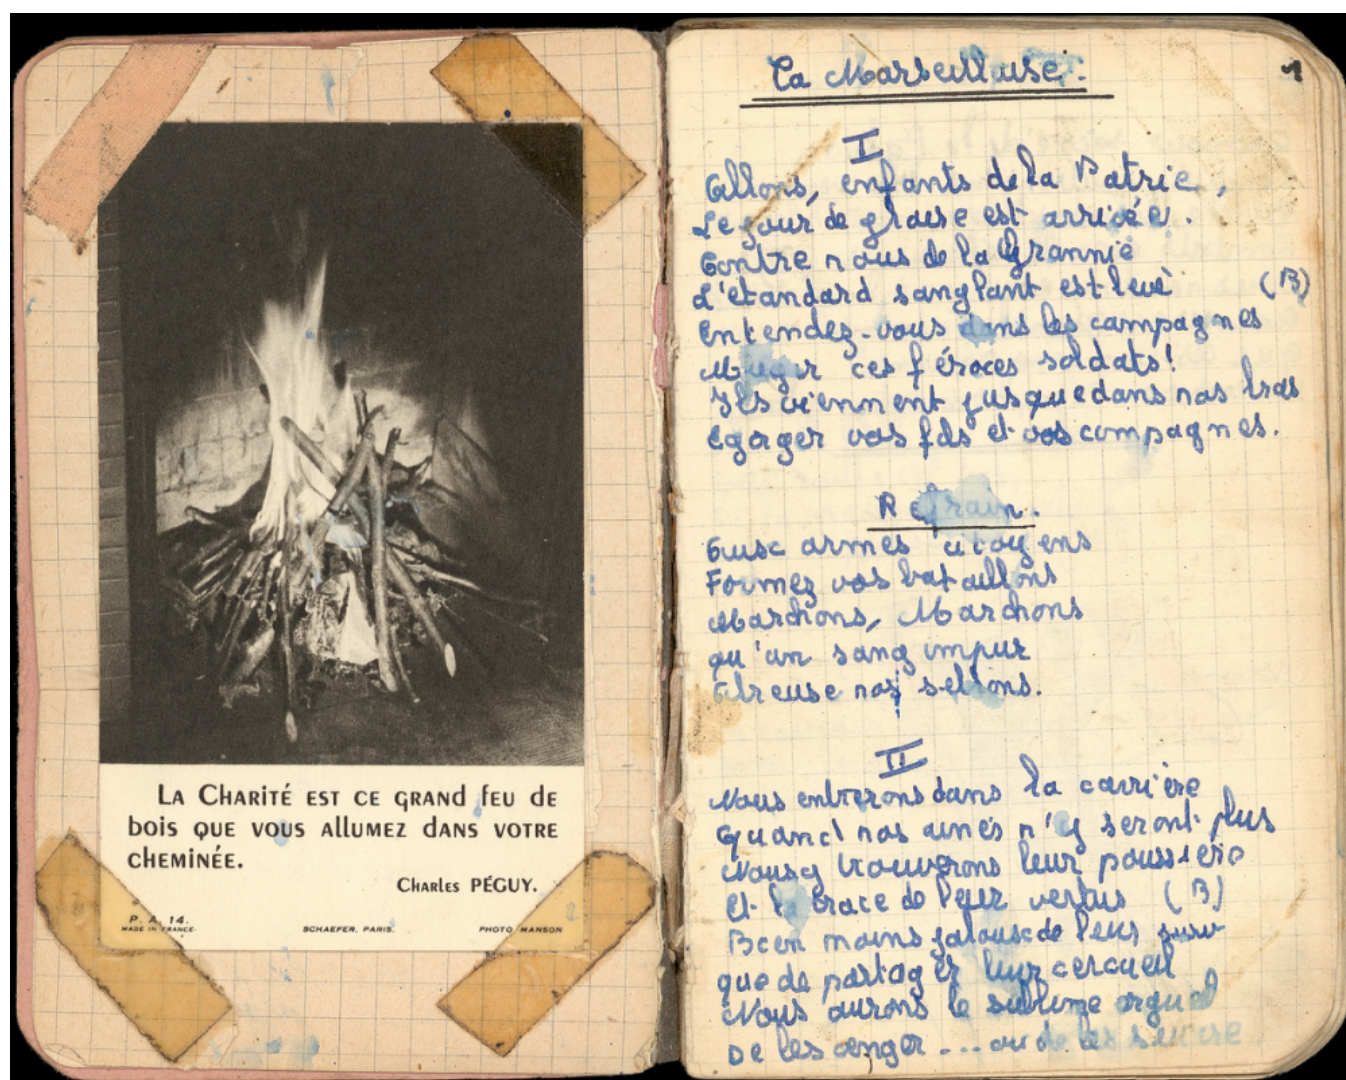 La Charité est ce grand feu de
bois que vous allumez dans votre
cheminée.
Charles PÉGUY.
P. A. 14.
MADE IN FRANCE.
SCHAEFER, PARIS.
PHOTO MANSON
La Marseillaise.
1
I
Allons, enfants de la Patrie,
Le jour de gloise est arrivée.
Contre nous de la tyrannie
L'étandard sanglant est levé (B)
Entendez-vous dans les campagnes
Mugir ces féroces soldats!
Ils viennent jusque dans nos bras
Egorger vos fils et vos compagnes.
Refrain.
Aux armes citoyens
Formez vos bataillons
Marchons, Marchons
qu'un sang impur
Abreuse nos sellions.
II
Nous entrerons dans la carrière
Quand nos ainés n'y seront plus
Nous y trouverons leur poussière
Et la trace de leur vertus (B)
Bien moins jaloux de leur surv
que de partager leur cercueil
Nous aurons le sublime orgueil
De les venger ... ou de les suivre